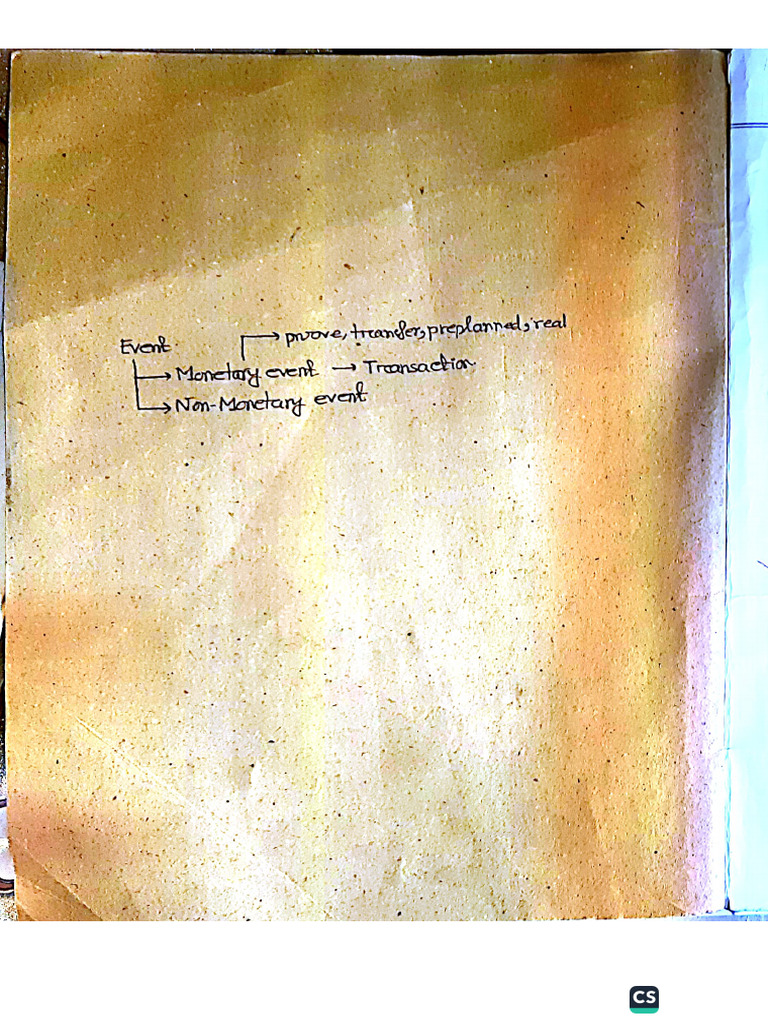 Event
→ prove, transfer, preplanned, real
→ Monetary event → Transaction
→ Non-Monetary event
CS